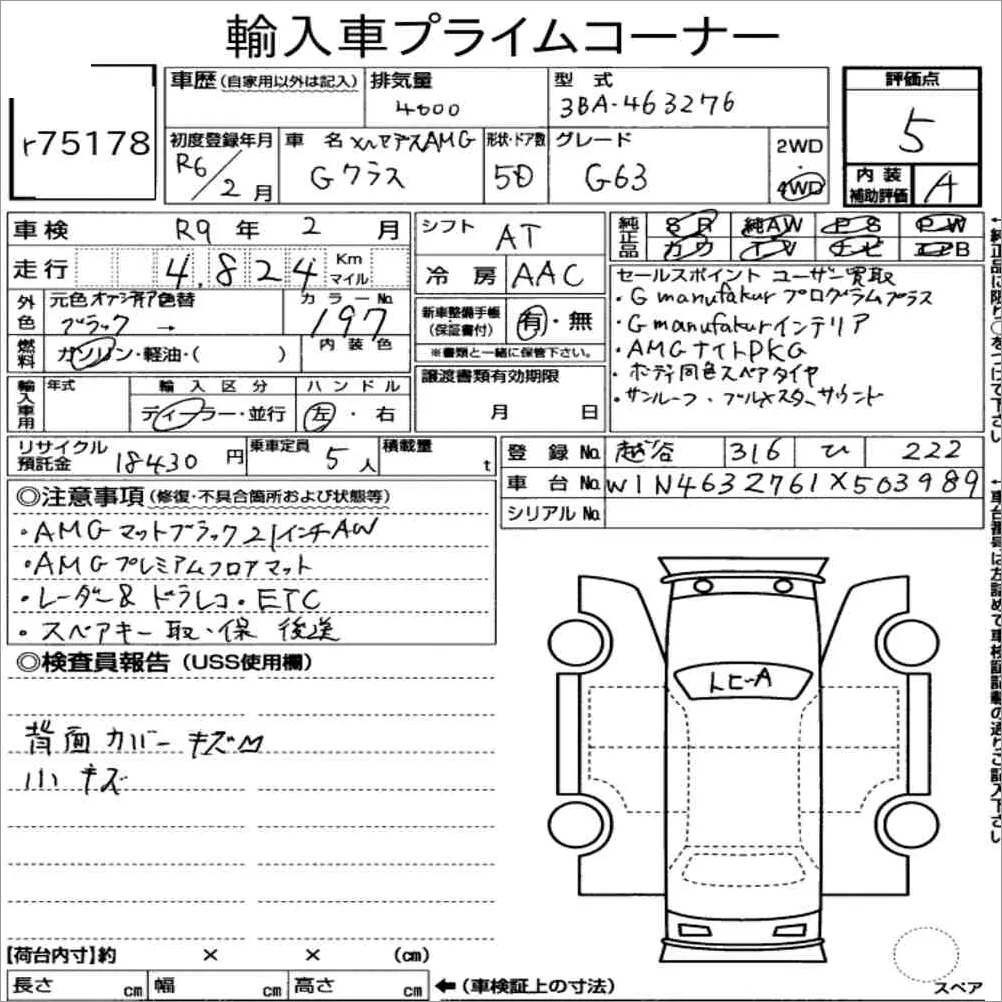 輸入車プライムコーナー
r75178
車歴(自家用以外は記入) 排気量 4000 型式 3BA-463276 評価点 5
初度登録年月 R6/2月 車名 メルセデスAMG Gクラス 形状・ドア数 5D グレード G63 2WD・4WD 内装補助評価 A
車検 R9年 2月 シフト AT 純正品 SR 純AW PS PW
カワ TV ナビ エアB
走行 4,824 Km マイル 冷房 AAC
外色 元色 ブラック → 色替 カラーNo. 197 内装色
新車整備手帳(保証書付) 有・無
※書類と一緒に保管下さい。
燃料 ガソリン・軽油・( )
セールスポイント ユーザー買取
・G manufakturプログラムプラス
・G manufakturインテリア
・AMGナイトPKG
・ボディ同色スペアタイヤ
・サンルーフ・ブルメスターサウンド
輸入車用 年式 輸入区分 ディーラー・並行 ハンドル 左・右
譲渡書類有効期限 月 日
リサイクル預託金 18430円 乗車定員 5人 積載量 t
登録No. 越谷 316 ひ 222
車台No. W1N4632761X503989
シリアルNo.
◎注意事項(修復・不具合箇所および状態等)
・AMGマットブラック21インチAW
・AMGプレミアムフロアマット
・レーダー&ドラレコ・ETC
・スペアキー 取・保 後送
◎検査員報告(USS使用欄)
背面カバーキズM
小キズ
トビーA
【荷台内寸】約 × × (cm)
長さ cm 幅 cm 高さ cm ←(車検証上の寸法)
スペア
←純正品に限り○をつけて下さい
←車台番号は左詰めで車検証記載の通りご記入下さい